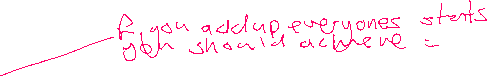 If you add up everyones starts
you should achieve =